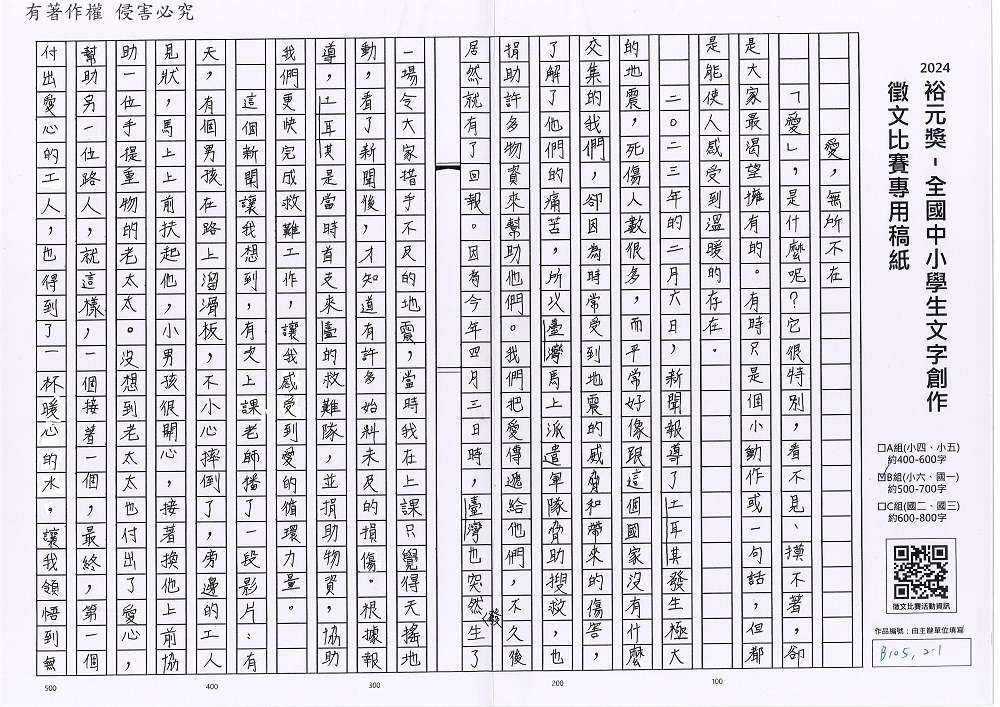 有著作權 侵害必究
2024
裕元獎-全國中小學生文字創作
徵文比賽專用稿紙
□A組(小四、小五)
約400-600字
☑B組(小六、國一)
約500-700字
□C組(國二、國三)
約600-800字
徵文比賽活動資訊
作品編號：由主辦單位填寫
B105, 2-1
愛，無所不在
「愛」，是什麼呢？它很特別，看不見、摸不著，卻
是大家最渴望擁有的。有時只是個小動作或一句話，但都
是能使人感受到溫暖的存在。
二○二三年的二月六日，新聞報導了土耳其發生極大
的地震，死傷人數很多，而平常好像跟這個國家沒有什麼
交集的我們，卻因為時常受到地震的威脅和帶來的傷害，
了解了他們的痛苦，所以臺灣馬上派遣軍隊脅助搜救，也
捐助許多物資來幫助他們。我們把愛傳遞給他們，不久後
居然就有了回報。因為今年四月三日時，臺灣也突然發生了
一場令大家措手不及的地震，當時我在上課只覺得天搖地
動，看了新聞後，才知道有許多始料未及的損傷。根據報
導，土耳其是當時首支來臺的救難隊，並捐助物資，協助
我們更快完成救難工作，讓我感受到愛的循環力量。
這個新聞讓我想到，有次上課老師播了一段影片：有
天，有個男孩在路上溜滑板，不小心摔倒了，旁邊的工人
見狀，馬上上前扶起他，小男孩很開心，接著換他上前協
助一位手提重物的老太太。沒想到老太太也付出了愛心，
幫助另一位路人，就這樣，一個接著一個，最終，第一個
付出愛心的工人，也得到了一杯暖心的水。讓我領悟到無
100
200
300
400
500